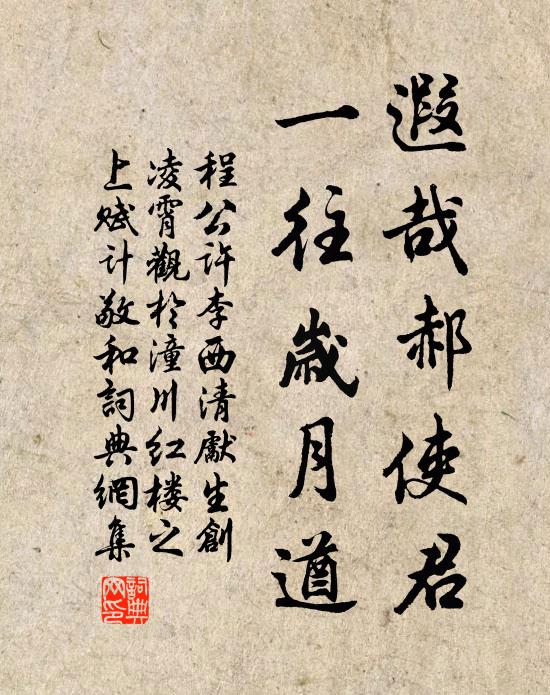 遐哉郝使君
一往歲月遒
程公许李西清獻生創
凌霄觀於潼川紅楼之
上賦计敬和詞典網集
詞典网印